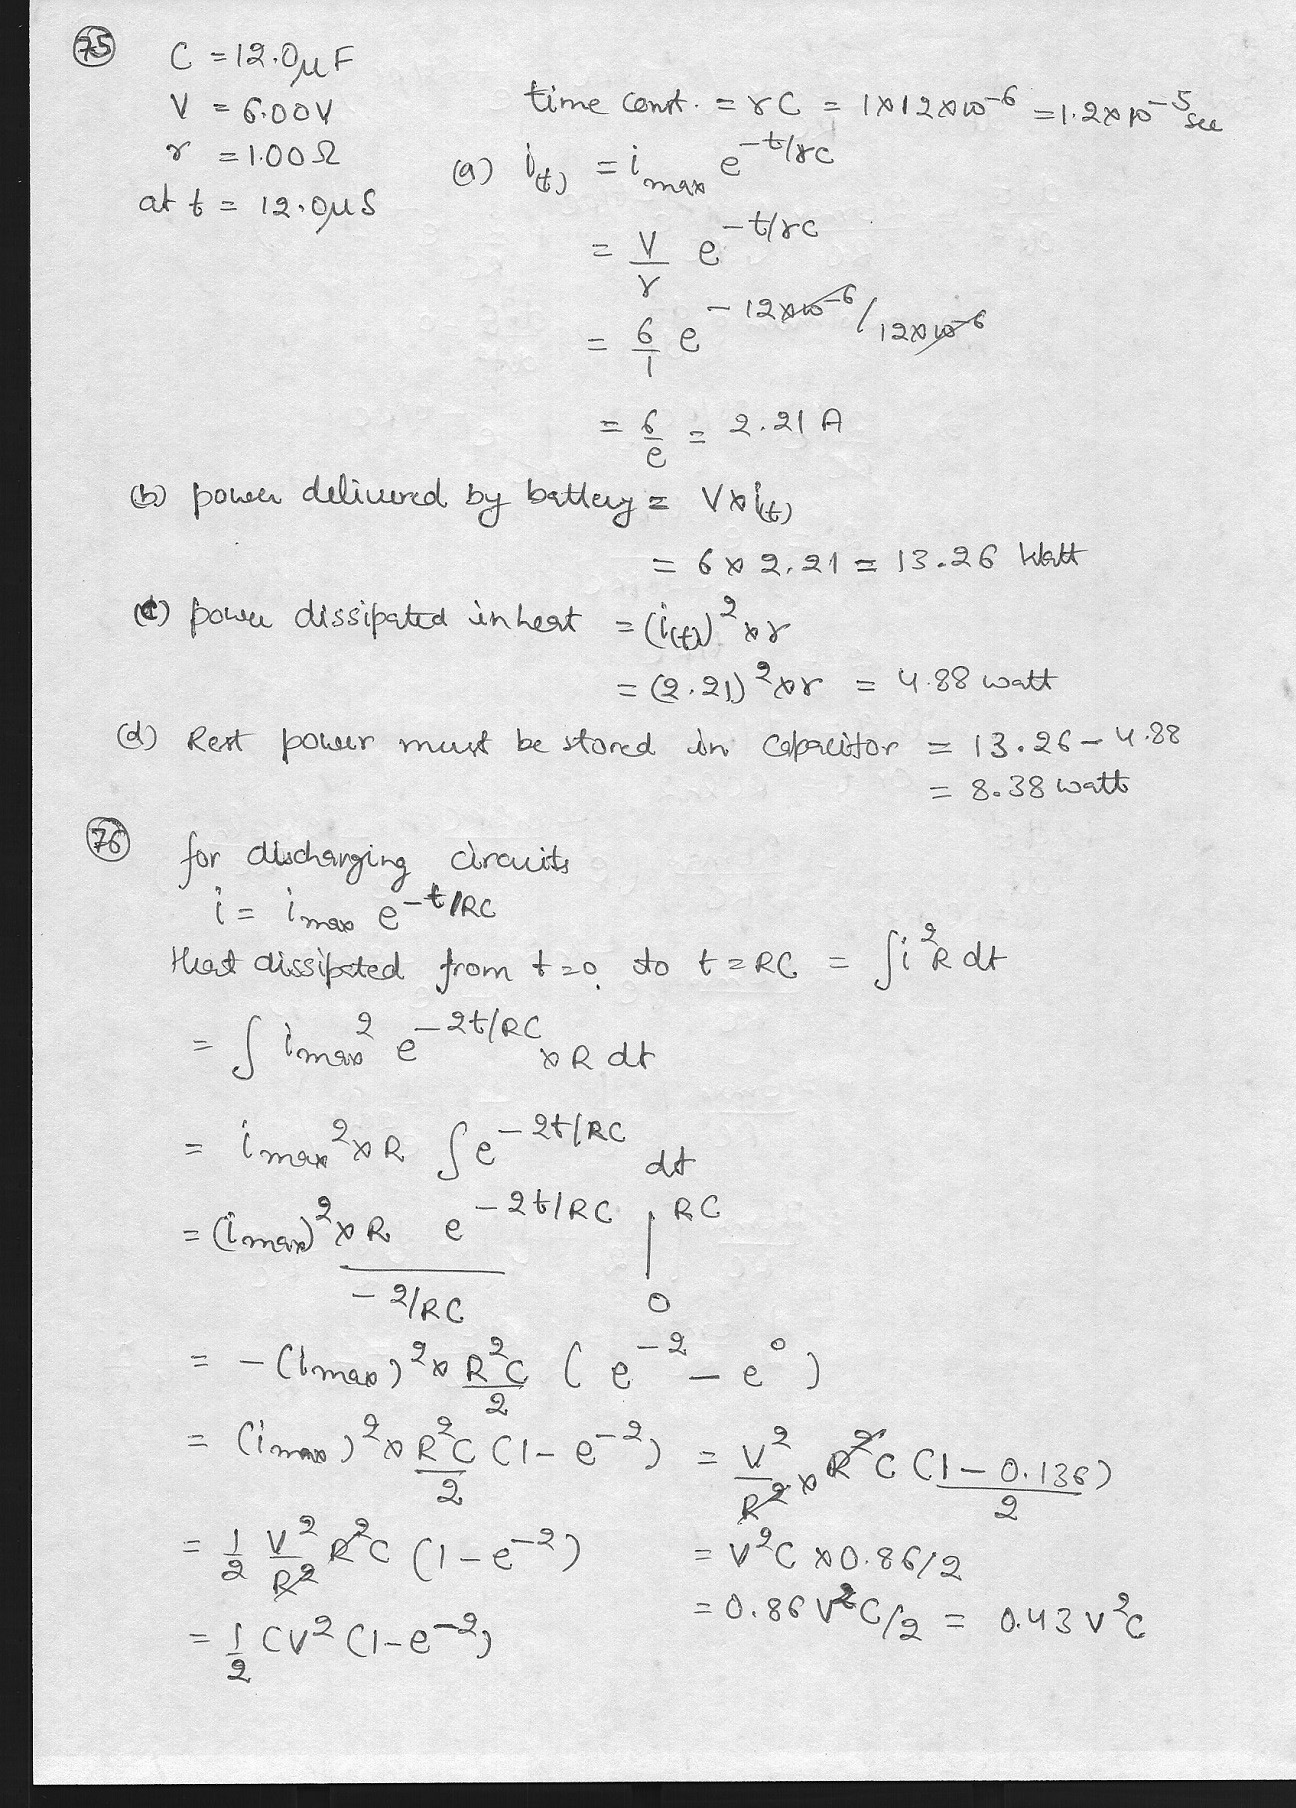 75
C = 12.0μF
V = 6.00V
r = 1.00Ω
at t = 12.0μS
time const. = rC = 1×12×10⁻⁶ = 1.2×10⁻⁵ sec
(a) i(t) = i max e^-t/rC
= V/r e^-t/rC
= 6/1 e^-12×10⁻⁶/12×10⁻⁶
= 6/e = 2.21 A
(b) power delivered by battery = V×i(t)
= 6 × 2.21 = 13.26 Watt
(c) power dissipated in heat = (i(t))² × r
= (2.21)² × r = 4.88 watt
(d) Rest power must be stored in capacitor = 13.26 - 4.88
= 8.38 watt
76
for discharging circuits
i = i max e^-t/RC
Heat dissipated from t=0 to t=RC = ∫i²R dt
= ∫ i max² e^-2t/RC × R dt
= i max² × R ∫e^-2t/RC dt
= (i max)² × R e^-2t/RC | RC
- 2/RC 0
= -(i max)² × R²C/2 (e⁻² - e⁰)
= (i max)² × R²C/2 (1 - e⁻²) = V²/R² × R²C (1 - 0.136)/2
= 1/2 V²/R² R²C (1 - e⁻²)
= V²C × 0.86/2
= 0.86 V²C/2 = 0.43 V²C
= 1/2 CV² (1-e⁻²)